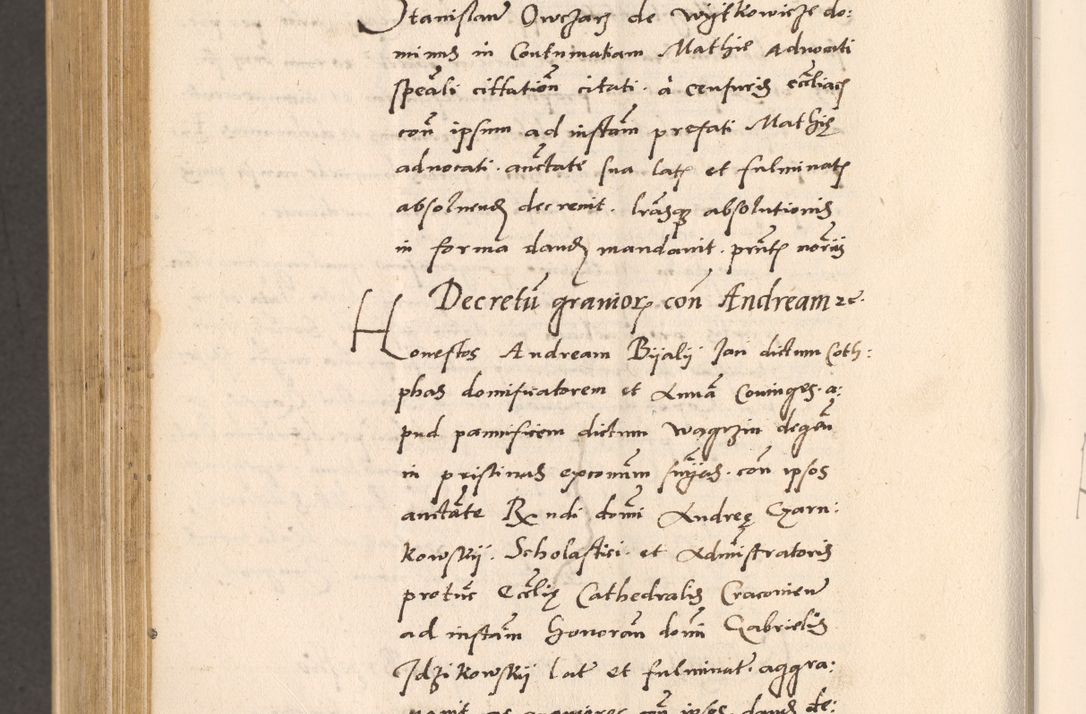 Stanislaum Owczarz de Wytkowicze do:
minus in Contumatiam Mathie Advocati
speali cittation citati. à censuris eccliac
con ipsum ad instam prefati Mathię
advocati. auctate sua lat et fulminat
absolvend decrevit. lrasq absolutionis
in forma dand mandavit. pntt noriis
Decretū gravior con Andream zc.
Honestos Andream Bijalij Jan dictum Coth:
phas domificatorem et Annā Coniuges. a:
pud pannificem dictum Wągrzin degen
in pristinas excomm snias. con ipsos
auctate Rndi domi Andreę Czarn:
kowskij. Scholastici. et Admistratoris
protuc Ecclię Cathedralis Cracovien
ad instam honoran domi Gabrielis
Idzikowskij lat et fulminat. aggra:
vavit ac graviores con ipsos dand de: